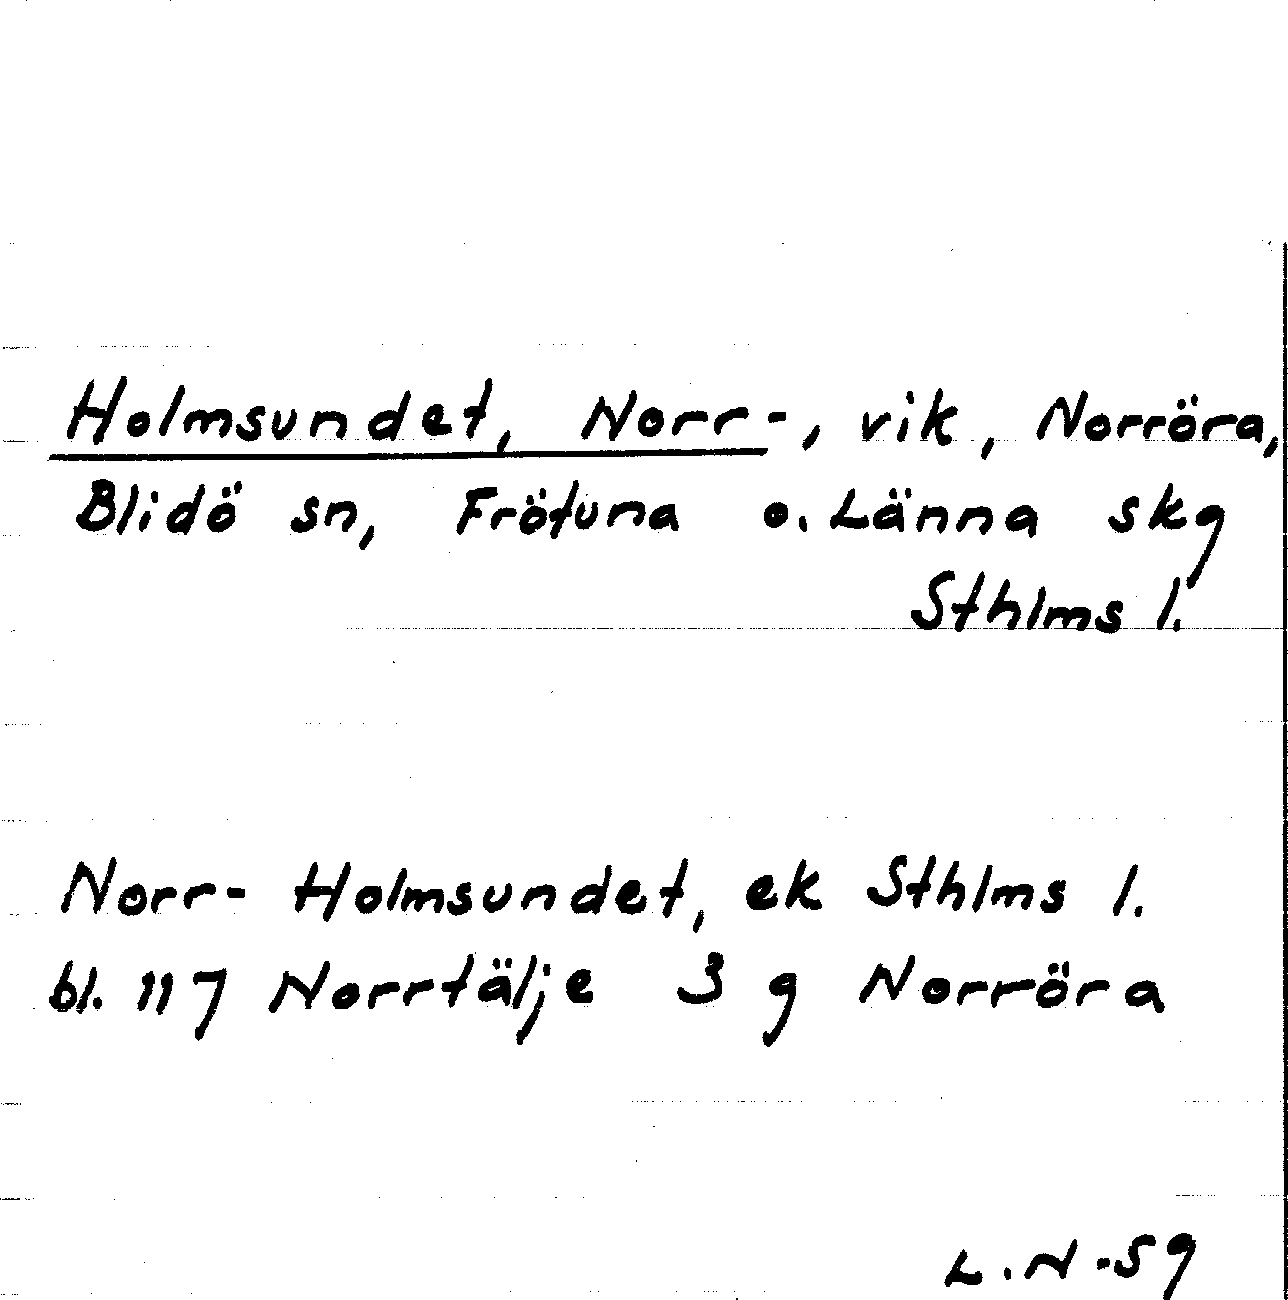 Holmsundet, Norr-, vik, Norröra,
Blidö sn, Frötuna o. Länna skg
Sthlms l.
Norr- Holmsundet, ek Sthlms l.
bl. 117 Norrtälje 3 g Norröra
L.N -59